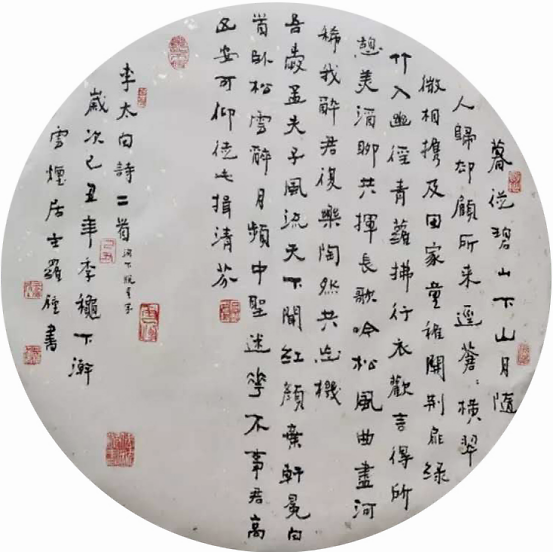 暮從碧山下山月隨
人歸却顧所來逕蒼〻橫翠
微相攜及田家童稚開荊扉綠
竹入幽徑青蘿拂行衣歡言得所
憩美酒聊共揮長歌吟松風曲盡河
稀我醉君復樂陶然共忘機
吾愛孟夫子風流天下聞紅顏棄軒冕白
首臥松雲醉月頻中聖迷花不事君高
山安可仰徒此揖清芬
李太白詩二首
歲次己丑年季穐下澣
雲煙居士羅鍾書